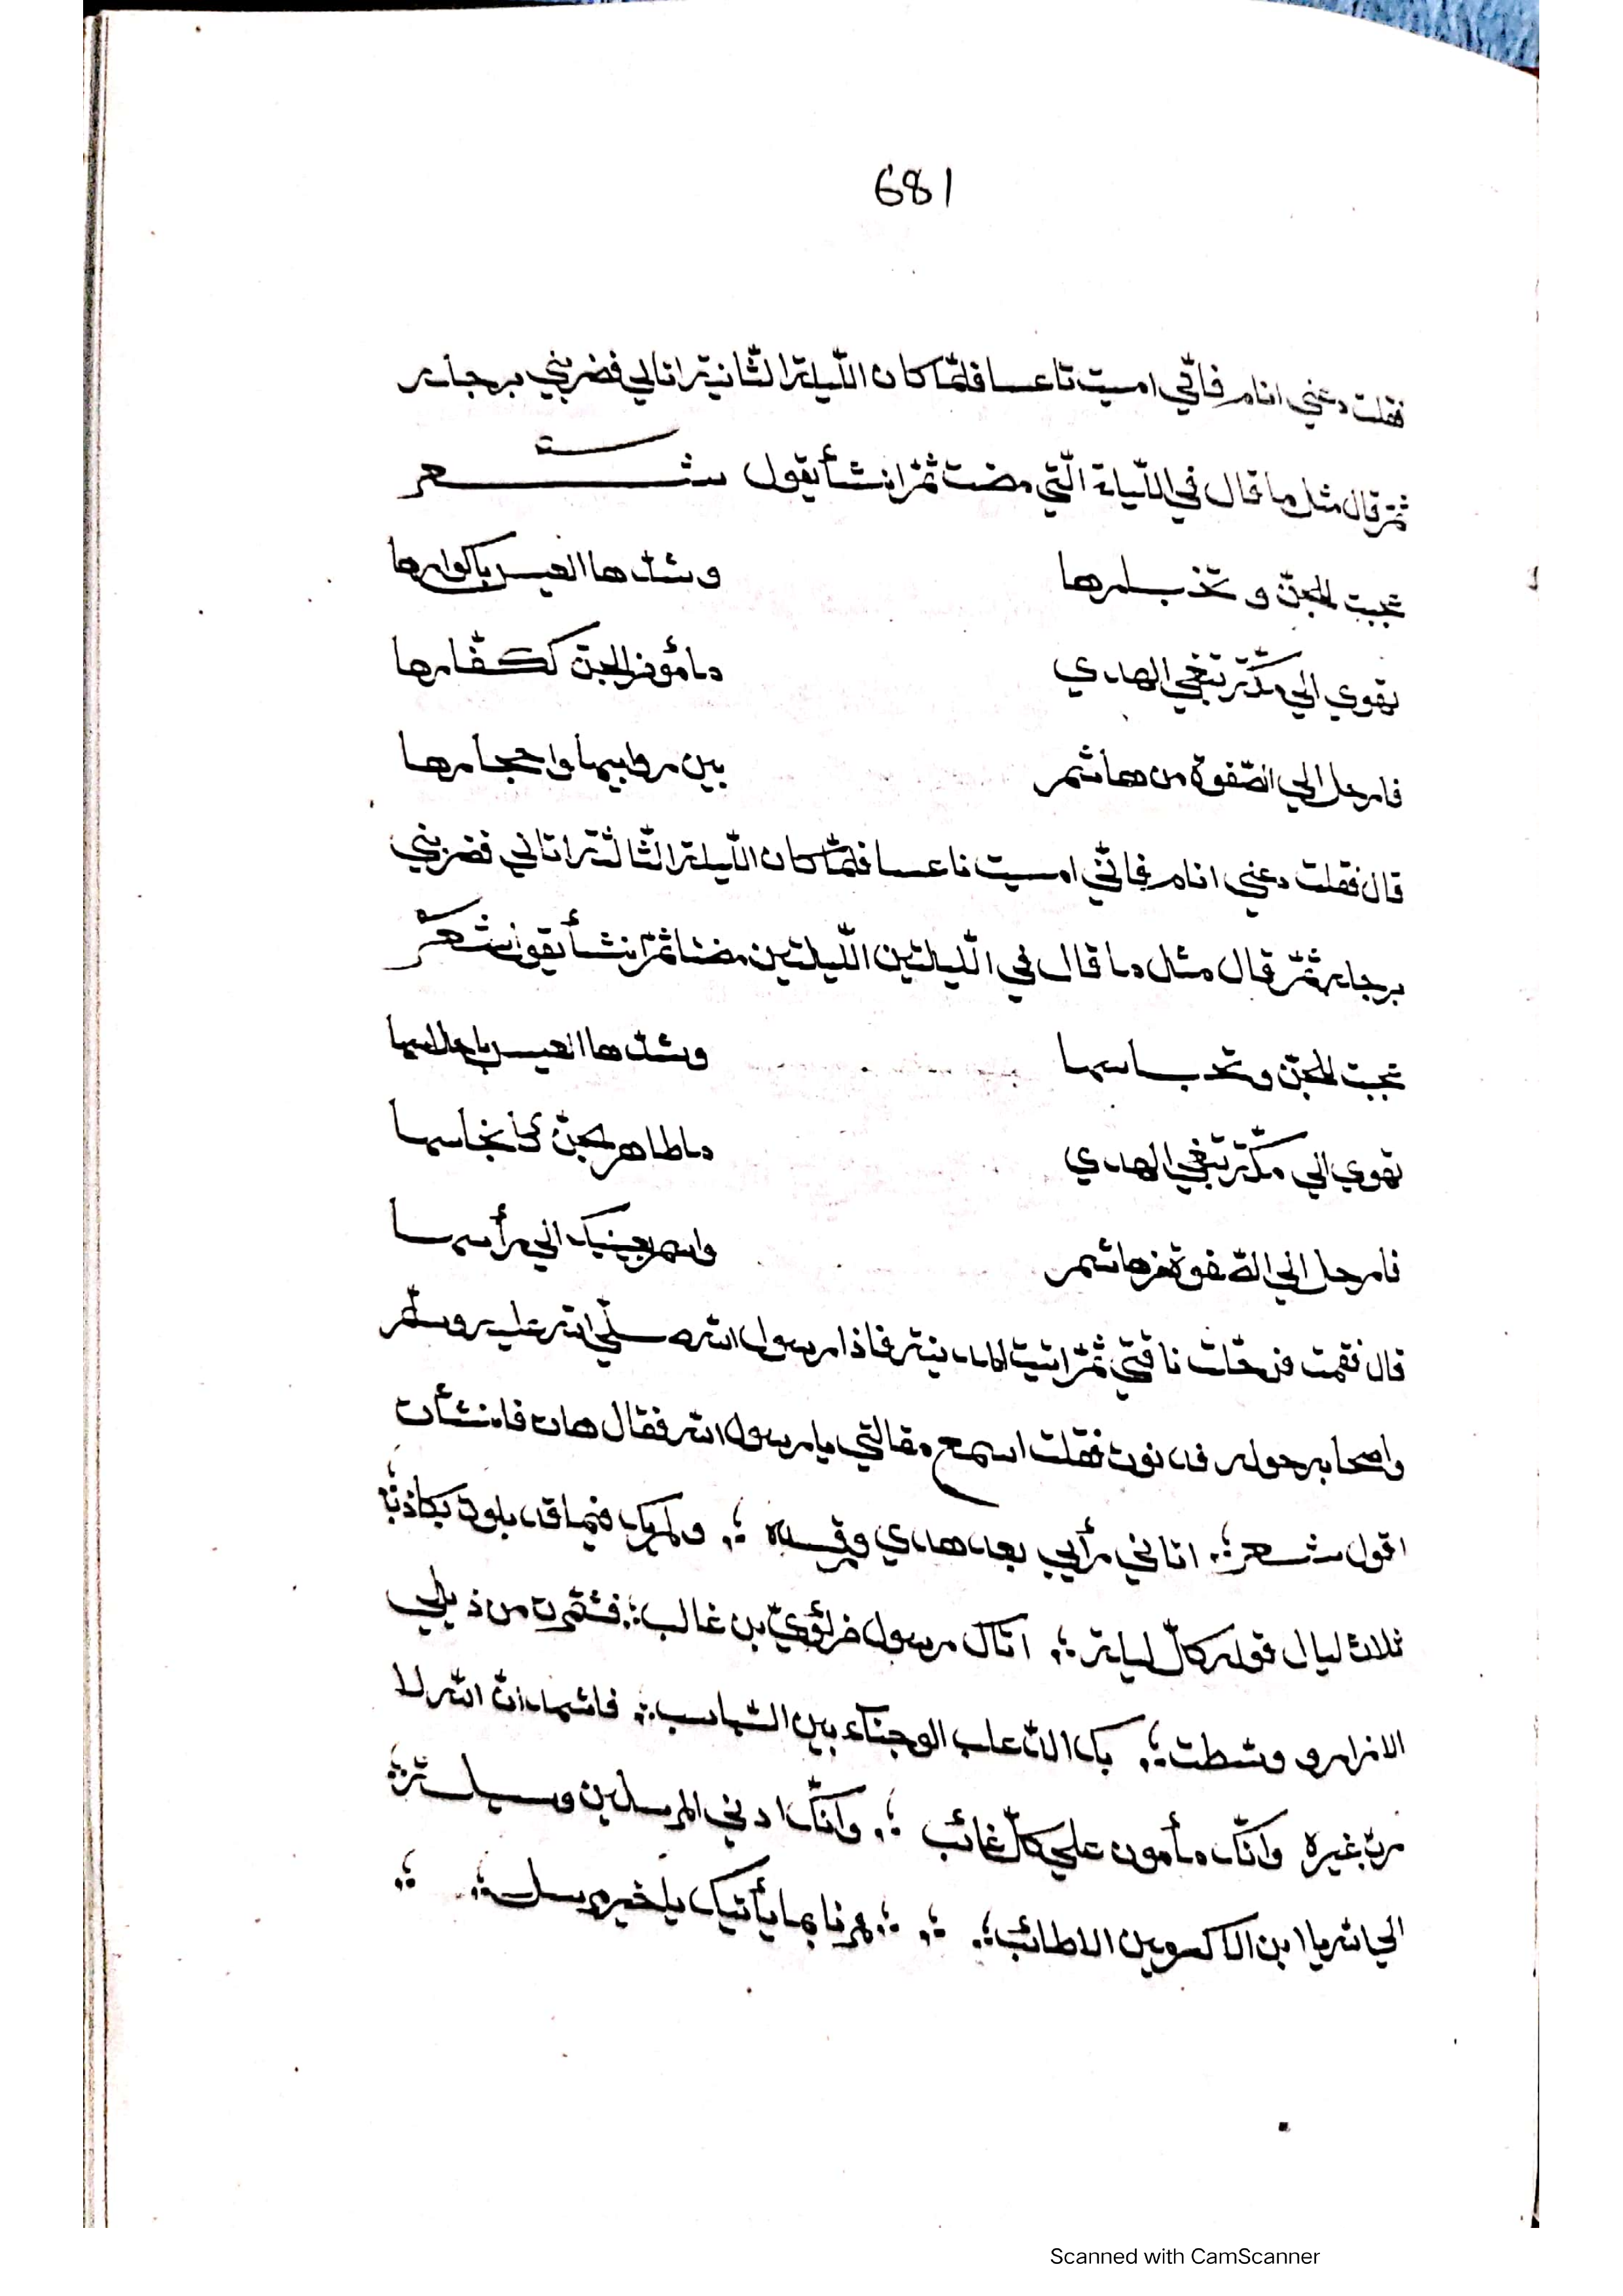 681
فقلت دعني انام فانّي امسيت ناعسا فلمّا كان اللّيلة الثّانية اتاني فضربني برجله
ثمّ قال مثل ما قال في اللّيلة الّتي مضت ثمّ انشأ يقول شعر
عجبت للجنّ و وشدّها العيس باكوارها
تهوي الي مكّة تبغي الهدي ما مؤمن الجنّ ككفّارها
فارحل الي الصّفوة من هاشم بين روابيها واحجارها
قال فقلت دعني انام فانّي امسيت ناعسا فلمّا كان اللّيلة الثّالثة اتاني فضربني
برجله ثمّ قال مثل ما قال في اللّيلتين اللّيلتين مضتا ثمّ انشأ يقول شعر
عجبت للجنّ و وشدّها العيس باحلاسها
تهوي الي مكّة تبغي الهدي ما طاهر الجنّ كانجاسها
فارحل الي الصّفوة من هاشم واسم بعينيك الي رأسها
قال فقمت فرحّلت ناقتي ثمّ اتيت المدينة فاذا رسول الله صلّي الله عليه وسلّم
واصحابه حوله فدنوت فقلت اسمع مقالتي يا رسول الله فقال هات فانشأت
اقول شعر؛ اتاني رأيي بعد هدي ؛ ولم يك فيما قد بلوت بكاذب؛
ثلاث ليال قوله كلّ ليلة ؛ اتاك رسول من لؤيّ بن غالب؛ فشمّرت من ذيلي
الازار و وسطت ؛ بي الذعلب الوجناء بين السّباسب؛ فاشهد انّ الله لا
ربّ غيره وانّك مأمون علي كلّ غائب ؛ وانّك ادني المرسلين وسيلة؛
الي الله يا ابن الاكرمين الاطائب؛ ؛ ؛ مرنا بما يأتيك يا خير مرسل؛ ؛
Scanned with CamScanner